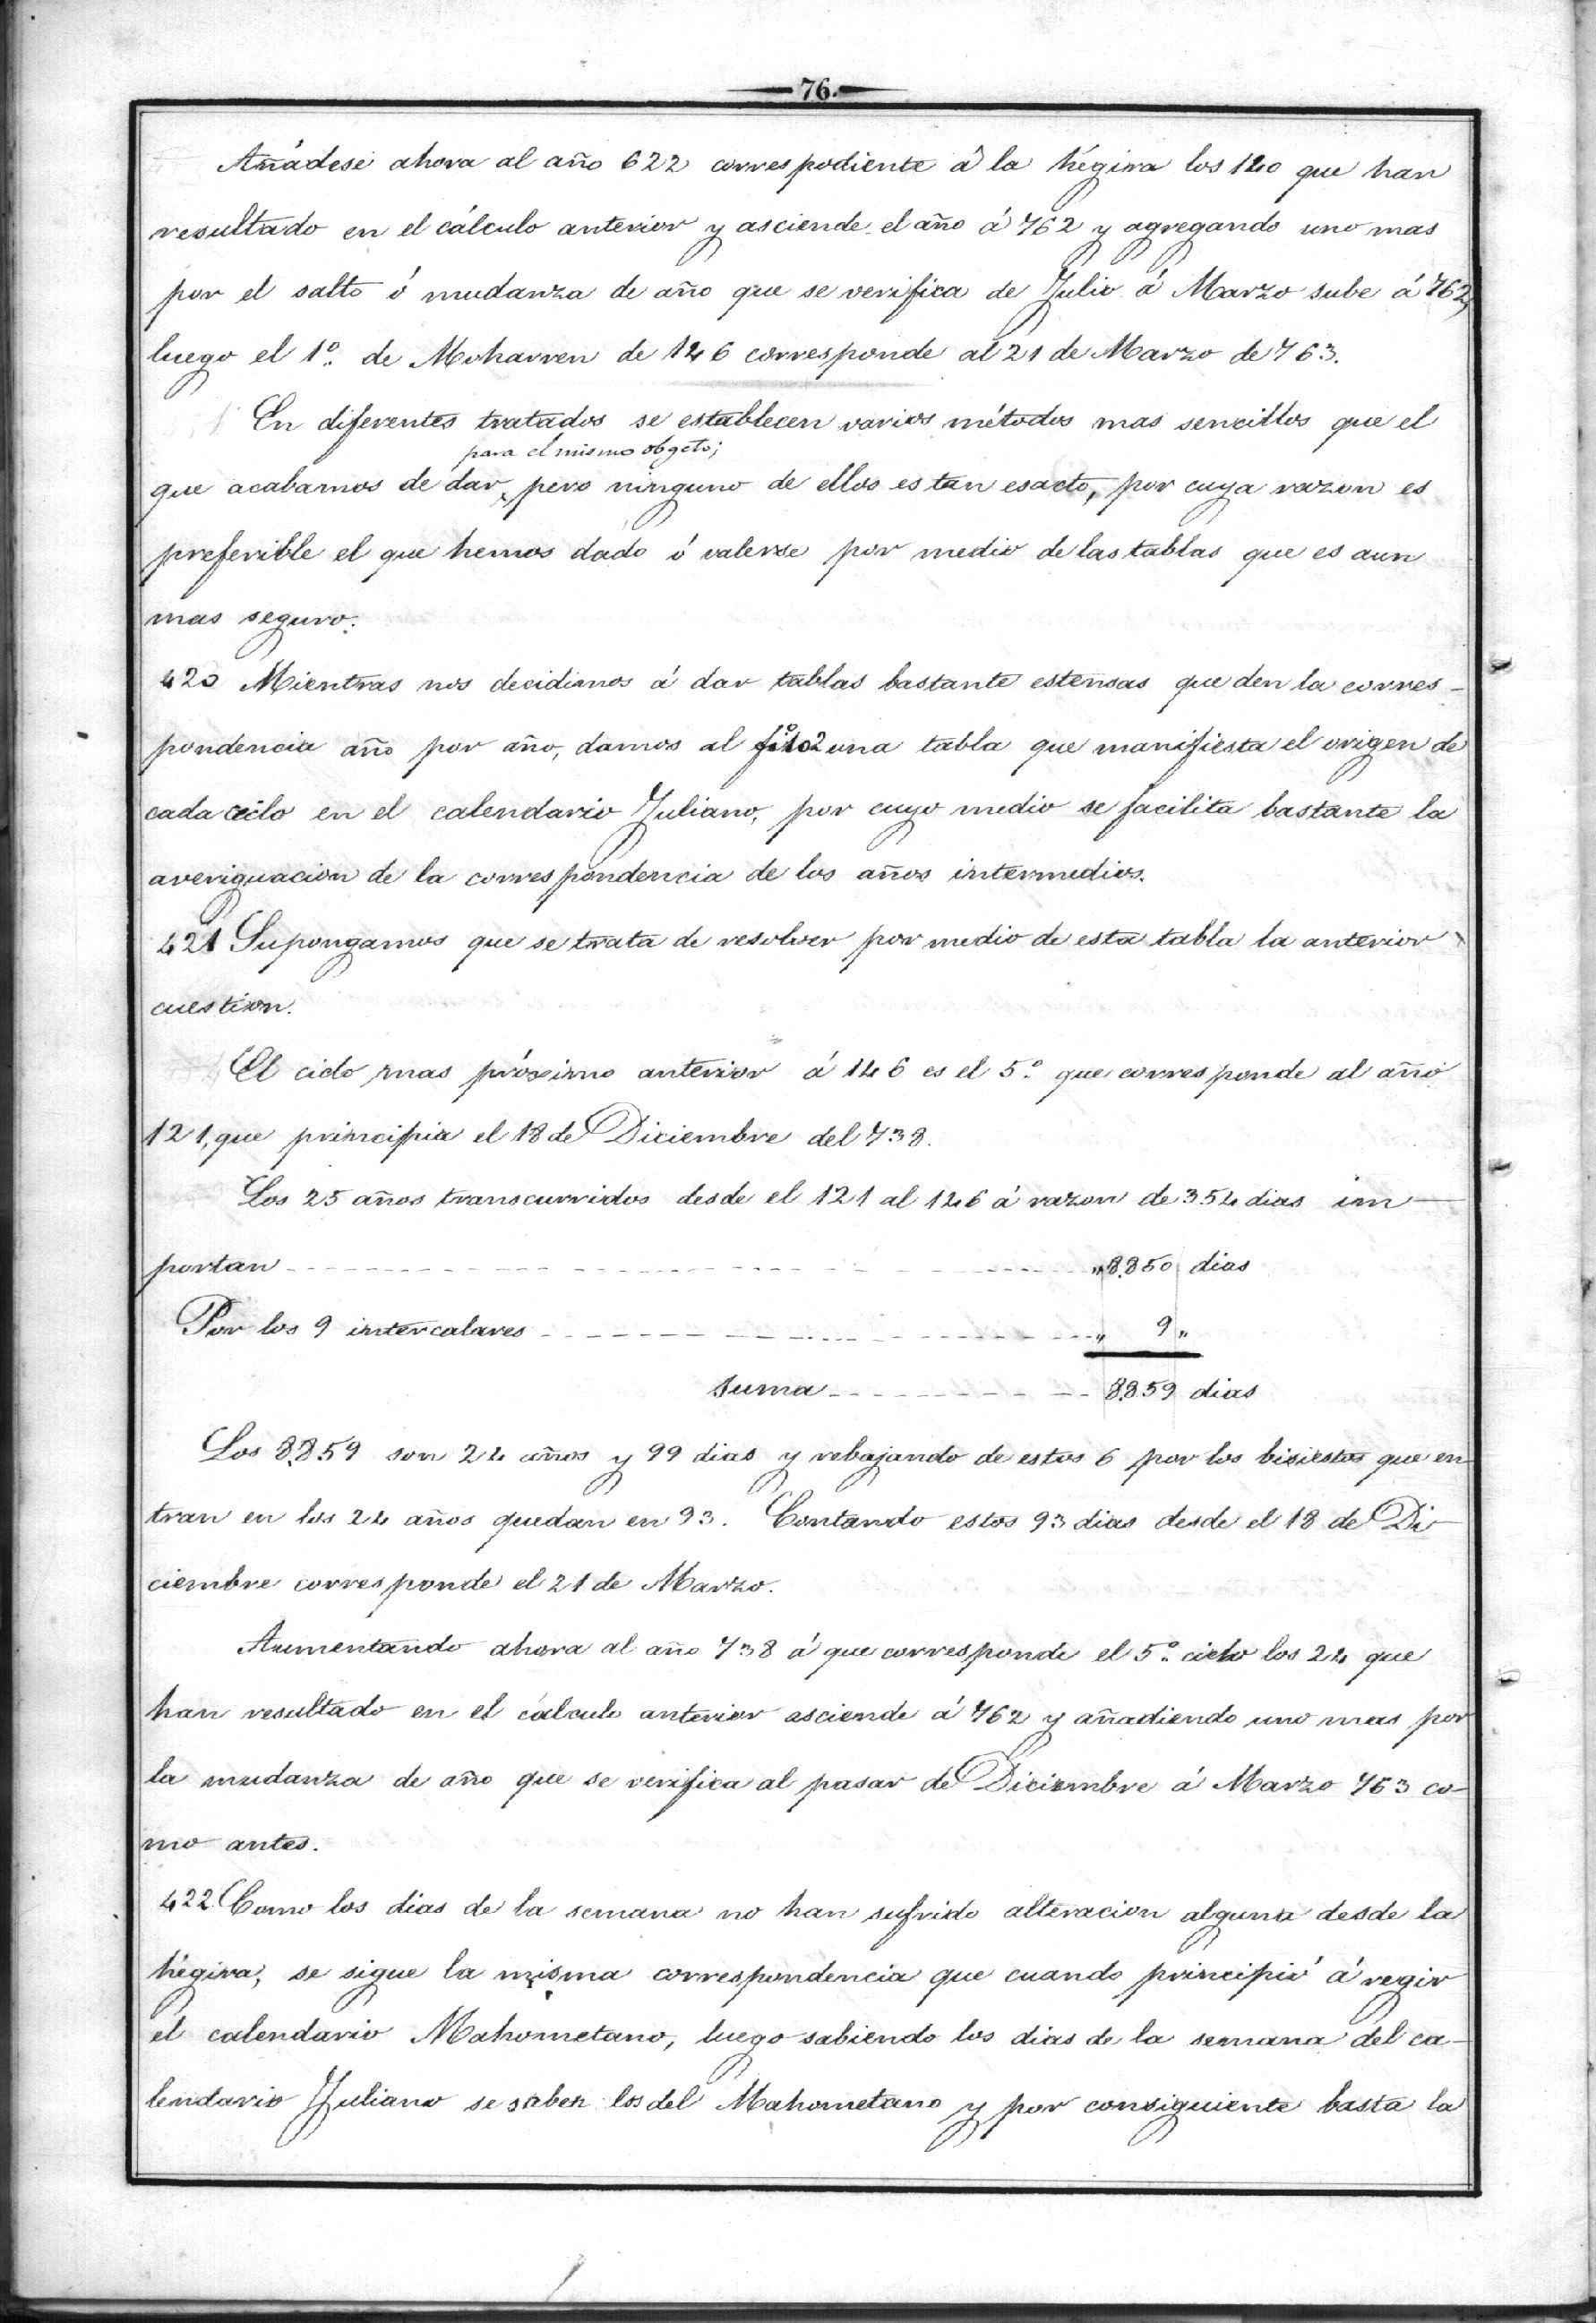 76.
Añádese ahora al año 622 correspodiente á la hégira los 140 que han
resultado en el cálculo anterior y asciende el año á 762 y agregando uno mas
por el salto ó mudanza de año que se verifica de Julio á Marzo sube á 762,
luego el 1º. de Moharren de 146 corresponde al 21 de Marzo de 763.
En diferentes tratados se establecen varios métodos mas sencillos que el
para el mismo obgeto;
que acabamos de dar, pero ninguno de ellos es tan esacto, por cuya razon es
preferible el que hemos dado ó valerse por medio de las tablas que es aun
mas seguro.
420 Mientras nos decidimos á dar tablas bastante estensas que den la corres-
pondencia año por año, damos al fº102 una tabla que manifiesta el origen de
cada ciclo en el calendario Juliano, por cuyo medio se facilita bastante la
averiguacion de la correspondencia de los años intermedios.
421 Supongamos que se trata de resolver por medio de esta tabla la anterior
cuestion.
El ciclo mas próximo anterior á 146 es el 5º. que corresponde al año
121, que principia el 18 de Diciembre del 738.
Los 25 años transcurridos desde el 121 al 146 á razon de 354 dias im-
portan - - - - - - - - „8.850 dias
Por los 9 intercalares - - - - - - - - „ 9„
Suma - - - - - - - - 8.859 dias
Los 8.859 son 24 años y 99 dias y rebajando de estos 6 por los bisiestos que en-
tran en los 24 años quedan en 93. Contando estos 93 dias desde el 18 de Di-
ciembre corresponde el 21 de Marzo.
Aumentando ahora al año 738 á que corresponde el 5º. ciclo los 24 que
han resultado en el cálculo anterior asciende á 762 y añadiendo uno mas por
la mudanza de año que se verifica al pasar de Diciembre á Marzo 763 co-
mo antes.
422 Como los dias de la semana no han sufrido alteracion alguna desde la
hégira, se sigue la misma correspondencia que cuando principió á regir
el calendario Mahometano, luego sabiendo los dias de la semana del ca-
lendario Juliano se saben los del Mahometano y por consiguiente basta la